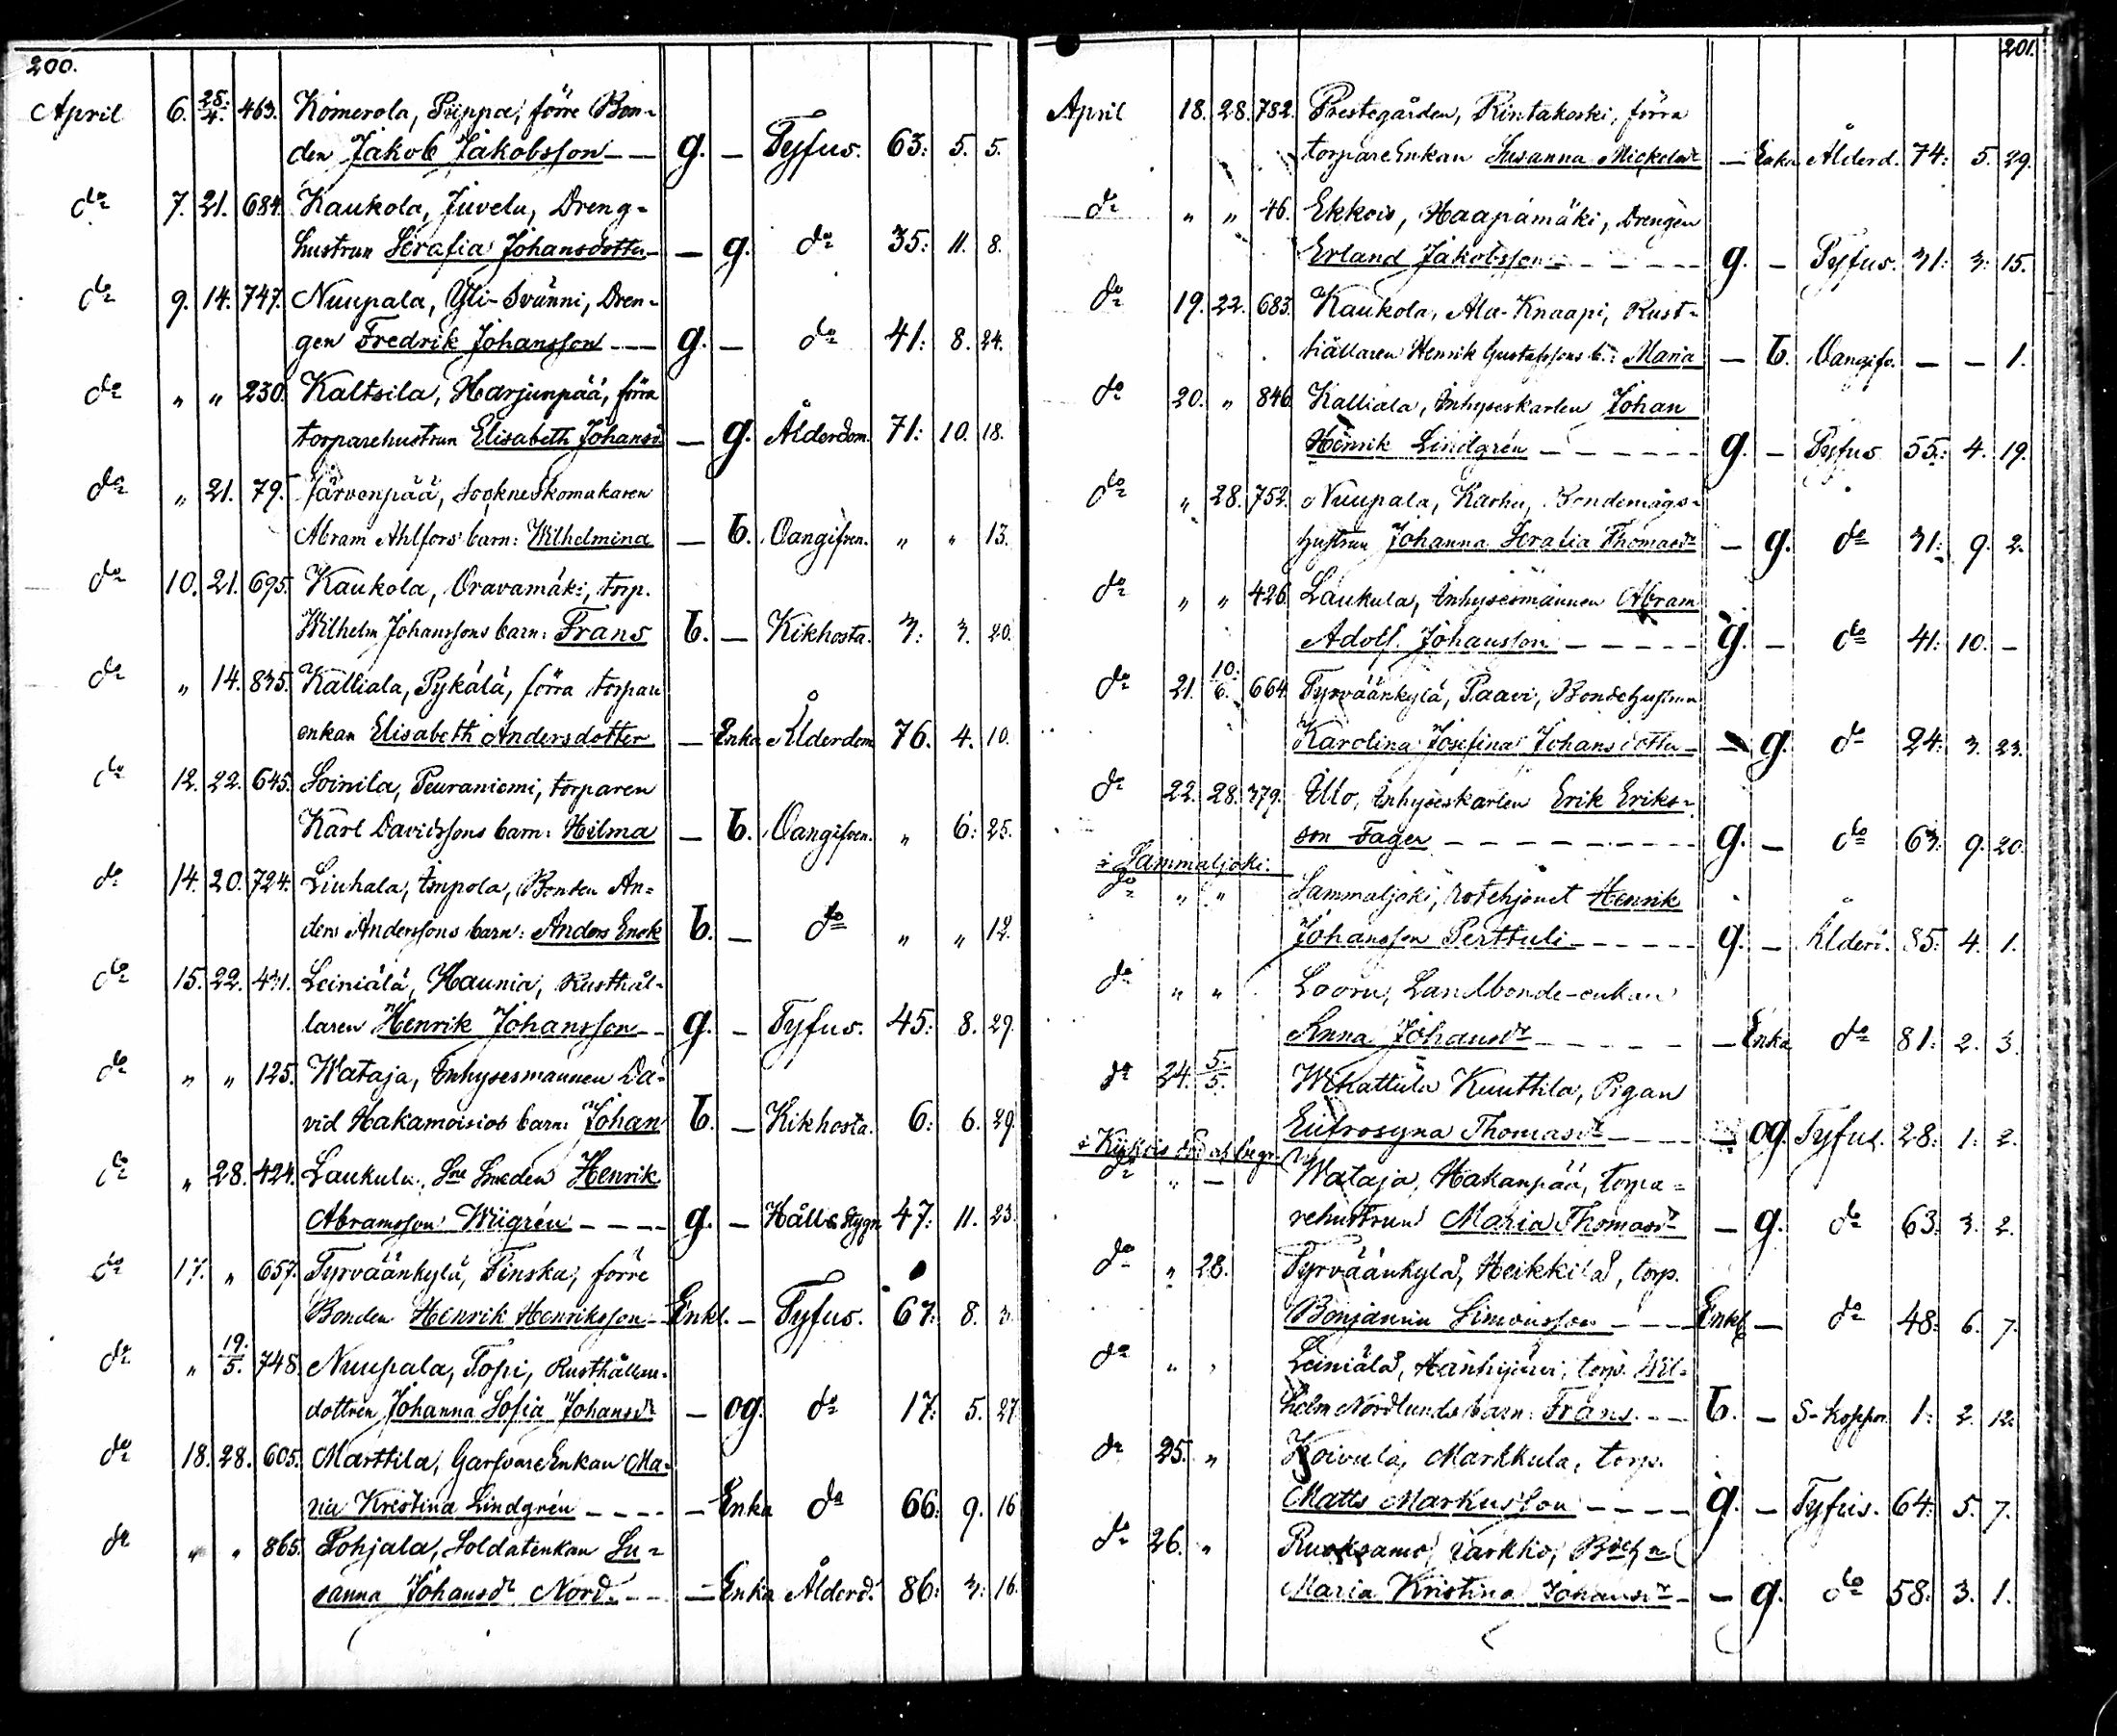 200.
April 6. 28./4. 463. Komerola, Prippa, förre Bon-
den Jakob Jakobsson — — g. — Tyfus. 63: 5. 5.
do 7. 21. 684. Kaukola, Juvela, Dreng-
hustrun Serafia Johansdotter — — g. do 35: 11. 8.
do 9. 14. 747. Nuupala, Yli-Svänni, Dren-
gen Fredrik Johansson — — g. — do 41: 8. 24.
do " " 230. Kaltsila, Harjunpää, förra
torparehustrun Elisabeth Johansd. — g. Ålderdom. 71: 10. 18.
do " 21. 79. Järvenpää, Sockneskomakaren
Abram Ahlfors' barn: Wilhelmina — b. Oangifven. " " 13.
do 10. 21. 695. Kaukola, Oravamäki, torp.
Wilhelm Johanssons barn: Frans b. — Kikhosta. 3: 3. 20.
do " 14. 835. Kalliala, Pykälä, förra torpare
enkan Elisabeth Andersdotter — Enka Ålderdom 76. 4. 10.
do 12. 22. 645. Soinila, Peuraniemi, torparen
Karl Davidssons barn: Hilma — b. Oangifven. " 6: 25.
do 14. 20. 724. Liuhala, Impola, Bonden An-
ders Anderssons barn: Anders Enok b. — do " " 12.
do 15. 22. 431. Leiniälä, Haunia, Rusthål-
laren Henrik Johansson — — g. — Tyfus. 45: 8. 29.
do " " 125. Wataja, Inhysesmannen Da-
vid Hakamoisios barn: Johan b. — Kikhosta. 6: 6. 29.
do " 28. 424. Laukula, Smeden Henrik
Abramsson Wiigrén — — — g. — Håll & Stygn 47: 11. 23.
do 17. " 657. Tyrväänkylä, Finska, förre
Bonden Henrik Henriksson — Enkl. — Tyfus. 67: 8. 3.
do " 19./5. 748. Nuupala, Topi, Rusthållare-
dottren Johanna Sofia Johansdr — og. do 17: 5. 27.
do 18. 28. 605. Marttila, GarfvareEnkan Ma-
ria Kristina Lindgrén — — — — Enka do 66: 9. 16
do " " 865. Pohjala, Soldatenkan Su-
sanna Johansdr Nord. — — — Enka Ålderd. 86: 3: 16.
201.
April 18. 28. 782. Prestegården, Rintakoski, förra
torpareEnkan Susanna Mickelsdr — Enka Ålderd. 74: 5. 29.
do " " 46. Ekkois, Haapamäki, Drengen
Erland Jakobsson — — — — g. — Tyfus. 31: 3: 15.
do 19. 22. 683. Kaukola, Ala-Knaapi, Rust-
hållaren Henrik Gustafssons b.: Maria — b. Oangifv. — — 1.
do 20. " 846. Kalliala, Inhyseskarlen Johan
Henrik Lindgrén — — — — — g. — Tyfus 55: 4. 19.
do " 28. 752. Nuupala, Karhu, Bondemågs-
hustrun Johanna Serafia Thomasdr — g. do 31: 9. 2.
do " " 426. Laukula, Inhysesmannen Abram
Adolf Johansson — — — — — g. — do 41: 10. —
do 21. 10./6. 664. Tyrväänkylä, Paavi, Bondehustrun
Karolina Josefina Johansdotter — — g. do 24: 3. 23.
do 22. 28. 379. Illo, Inhyseskarlen Erik Eriks-
son Fager — — — — — — g. — do 63: 9. 20.
i Sammaljoki.
do " " Sammaljoki, rotehjonet Henrik
Johansson Perttuli — — — — g. — Ålderd. 85: 4. 1.
do " " Looru, Landbonde-enkan
Anna Johansdr — — — — — Enka do 81: 2. 3.
do 24. 5./5. Wihattula Kuuttila, Pigan
Eufrosyna Thomasdr — — — — og. Tyfus. 28: 1: 2.
i Kiikois död o begr.
do " — Wataja, Hakanpää, torpa-
rehustrun Maria Thomasdr — g. do 63: 3. 2.
do " 28. Tyrväänkylä, Heikkilä, torp.
Benjamin Simonsson — — — Enkl. — do 48: 6. 7.
do " " Leiniälä, Hanhijärvi, torp. Wil-
helm Nordlunds barn: Frans. — — b. — S-koppor. 1: 2. 12.
do 25. " Koivula, Markkula, torp.
Matts Markusson — — — — g. — Tyfus. 64: 5. 7.
do 26. " Ruoksamo,
Maria Kristina Johansdr — — g. do 58: 3. 1.